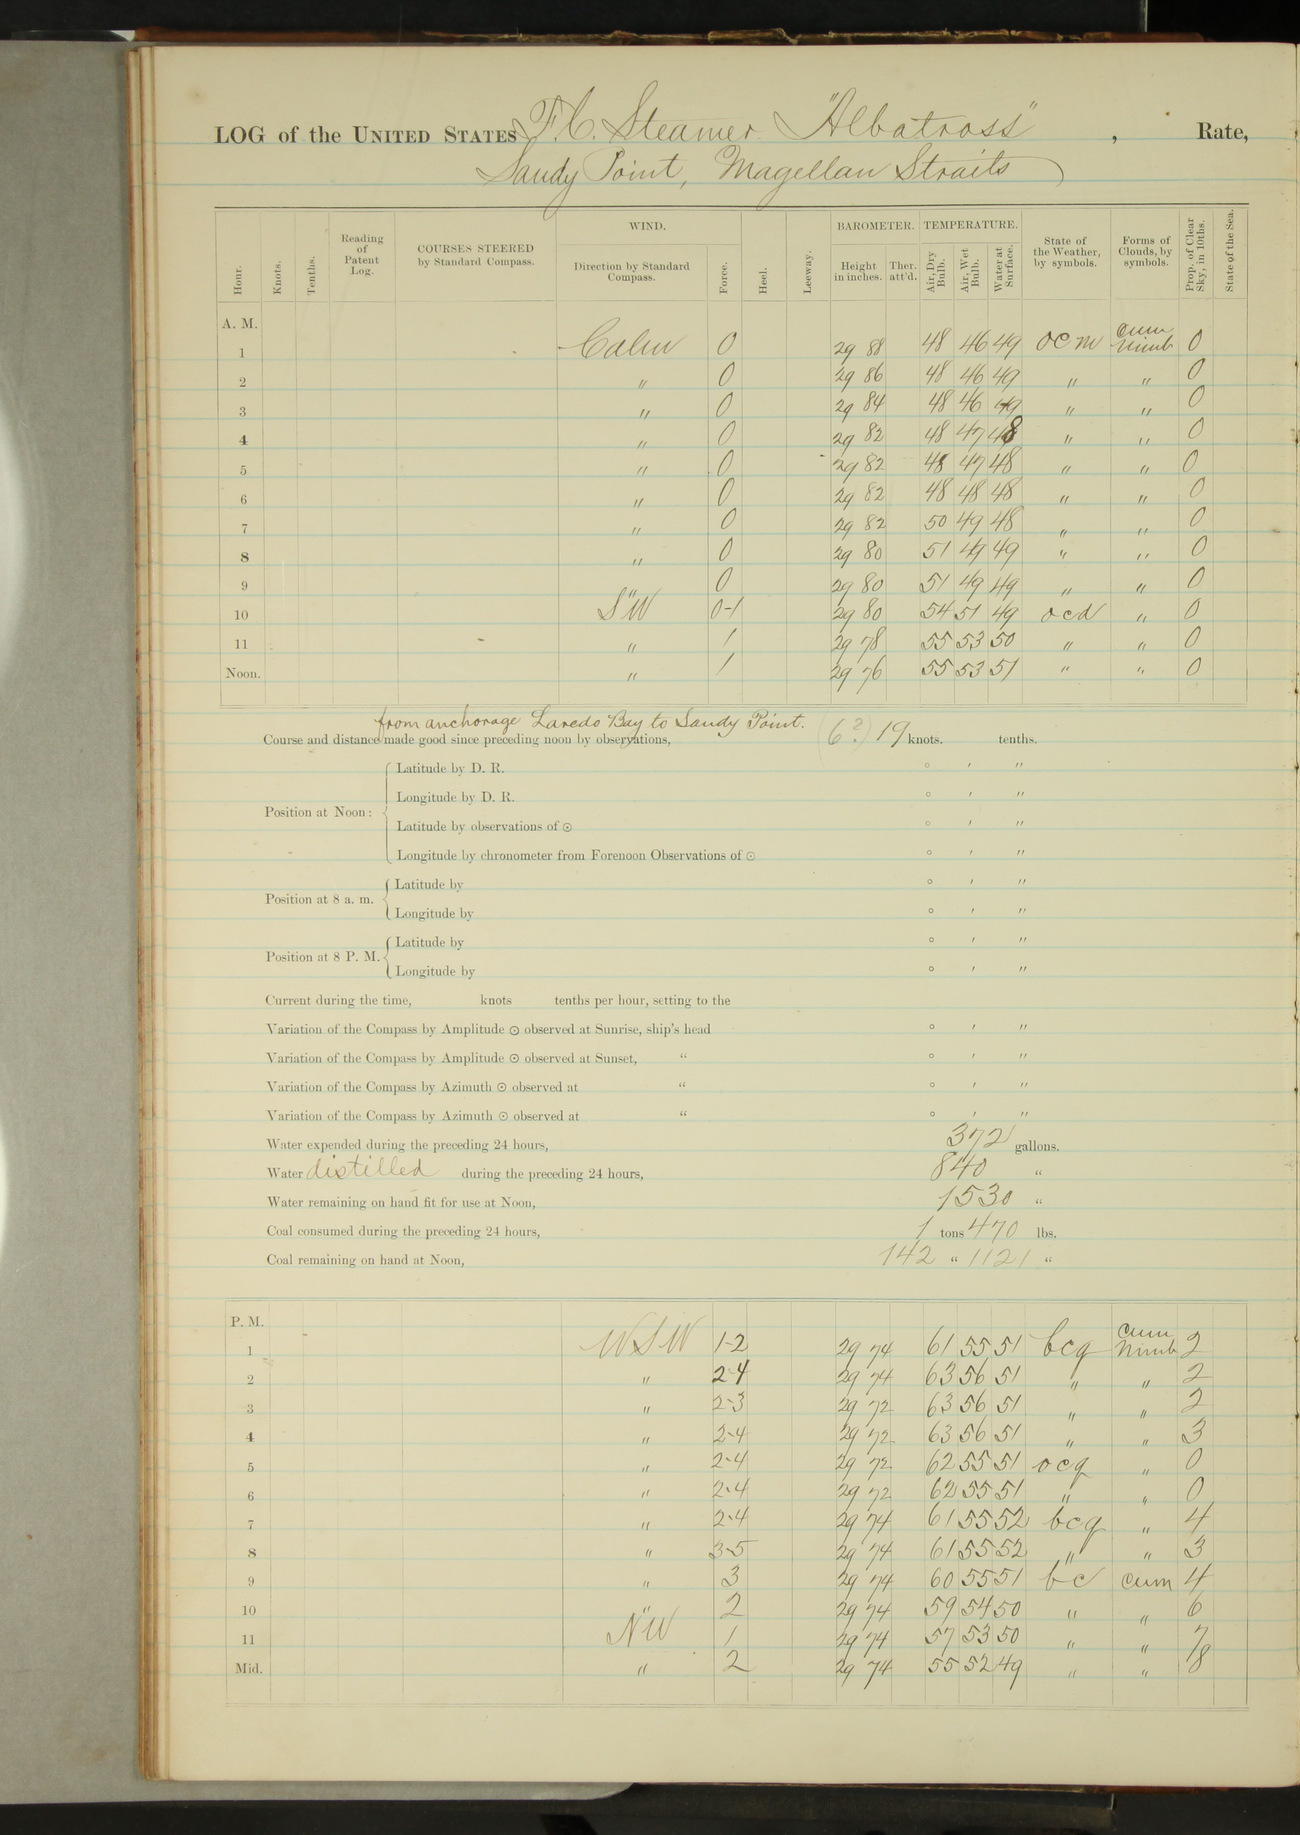 LOG of the UNITED STATES F.C. Steamer "Albatross", Rate,
Sandy Point, Magellan Straits
Hour. Knots. Tenths. Reading of Patent Log. COURSES STEERED by Standard Compass. WIND. Direction by Standard Compass. Force. Heel. Leeway. BAROMETER. Height in inches. Ther. att'd. TEMPERATURE. Air, Dry Bulb. Air, Wet Bulb. Water at Surface. State of the Weather, by symbols. Forms of Clouds, by symbols. Prop. of Clear Sky, in 10ths. State of the Sea.
A. M.
1 Calm 0 29 88 48 46 49 ocm Cum Nimb 0
2 " 0 29 86 48 46 49 " " 0
3 " 0 29 84 48 46 49 " " 0
4 " 0 29 82 48 47 48 " " 0
5 " 0 29 82 48 47 48 " " 0
6 " 0 29 82 48 48 48 " " 0
7 " 0 29 82 50 49 48 " " 0
8 " 0 29 80 51 49 49 " " 0
9 " 0 29 80 51 49 49 " " 0
10 SW 0-1 29 80 54 51 49 ocd " 0
11 " 1 29 78 55 53 50 " " 0
Noon. " 1 29 76 55 53 51 " " 0
from anchorage Laredo Bay to Sandy Point.
Course and distance made good since preceding noon by observations, (6?) 19 knots. tenths.
Position at Noon: Latitude by D. R. ° ′ ″
Longitude by D. R. ° ′ ″
Latitude by observations of ☉ ° ′ ″
Longitude by chronometer from Forenoon Observations of ☉ ° ′ ″
Position at 8 a. m. Latitude by ° ′ ″
Longitude by ° ′ ″
Position at 8 P. M. Latitude by ° ′ ″
Longitude by ° ′ ″
Current during the time, knots tenths per hour, setting to the
Variation of the Compass by Amplitude ☉ observed at Sunrise, ship's head ° ′ ″
Variation of the Compass by Amplitude ☉ observed at Sunset, " ° ′ ″
Variation of the Compass by Azimuth ☉ observed at " ° ′ ″
Variation of the Compass by Azimuth ☉ observed at " ° ′ ″
Water expended during the preceding 24 hours, 372 gallons.
Water distilled during the preceding 24 hours, 840 "
Water remaining on hand fit for use at Noon, 1530 "
Coal consumed during the preceding 24 hours, 1 tons 470 lbs.
Coal remaining on hand at Noon, 142 " 1121 "
P. M.
1 WSW 1-2 29 74 61 55 51 bcq Cum Nimb 2
2 " 2-4 29 74 63 56 51 " " 2
3 " 2-3 29 72 63 56 51 " " 2
4 " 2-4 29 72 63 56 51 " " 3
5 " 2-4 29 72 62 55 51 ocq " 0
6 " 2-4 29 72 62 55 51 " " 0
7 " 2-4 29 74 61 55 52 bcq " 4
8 " 3-5 29 74 61 55 52 " " 3
9 " 3 29 74 60 55 51 bc Cum 4
10 " 2 29 74 59 54 50 " " 6
11 NW 1 29 74 57 53 50 " " 7
Mid. " 2 29 74 55 52 49 " " 8